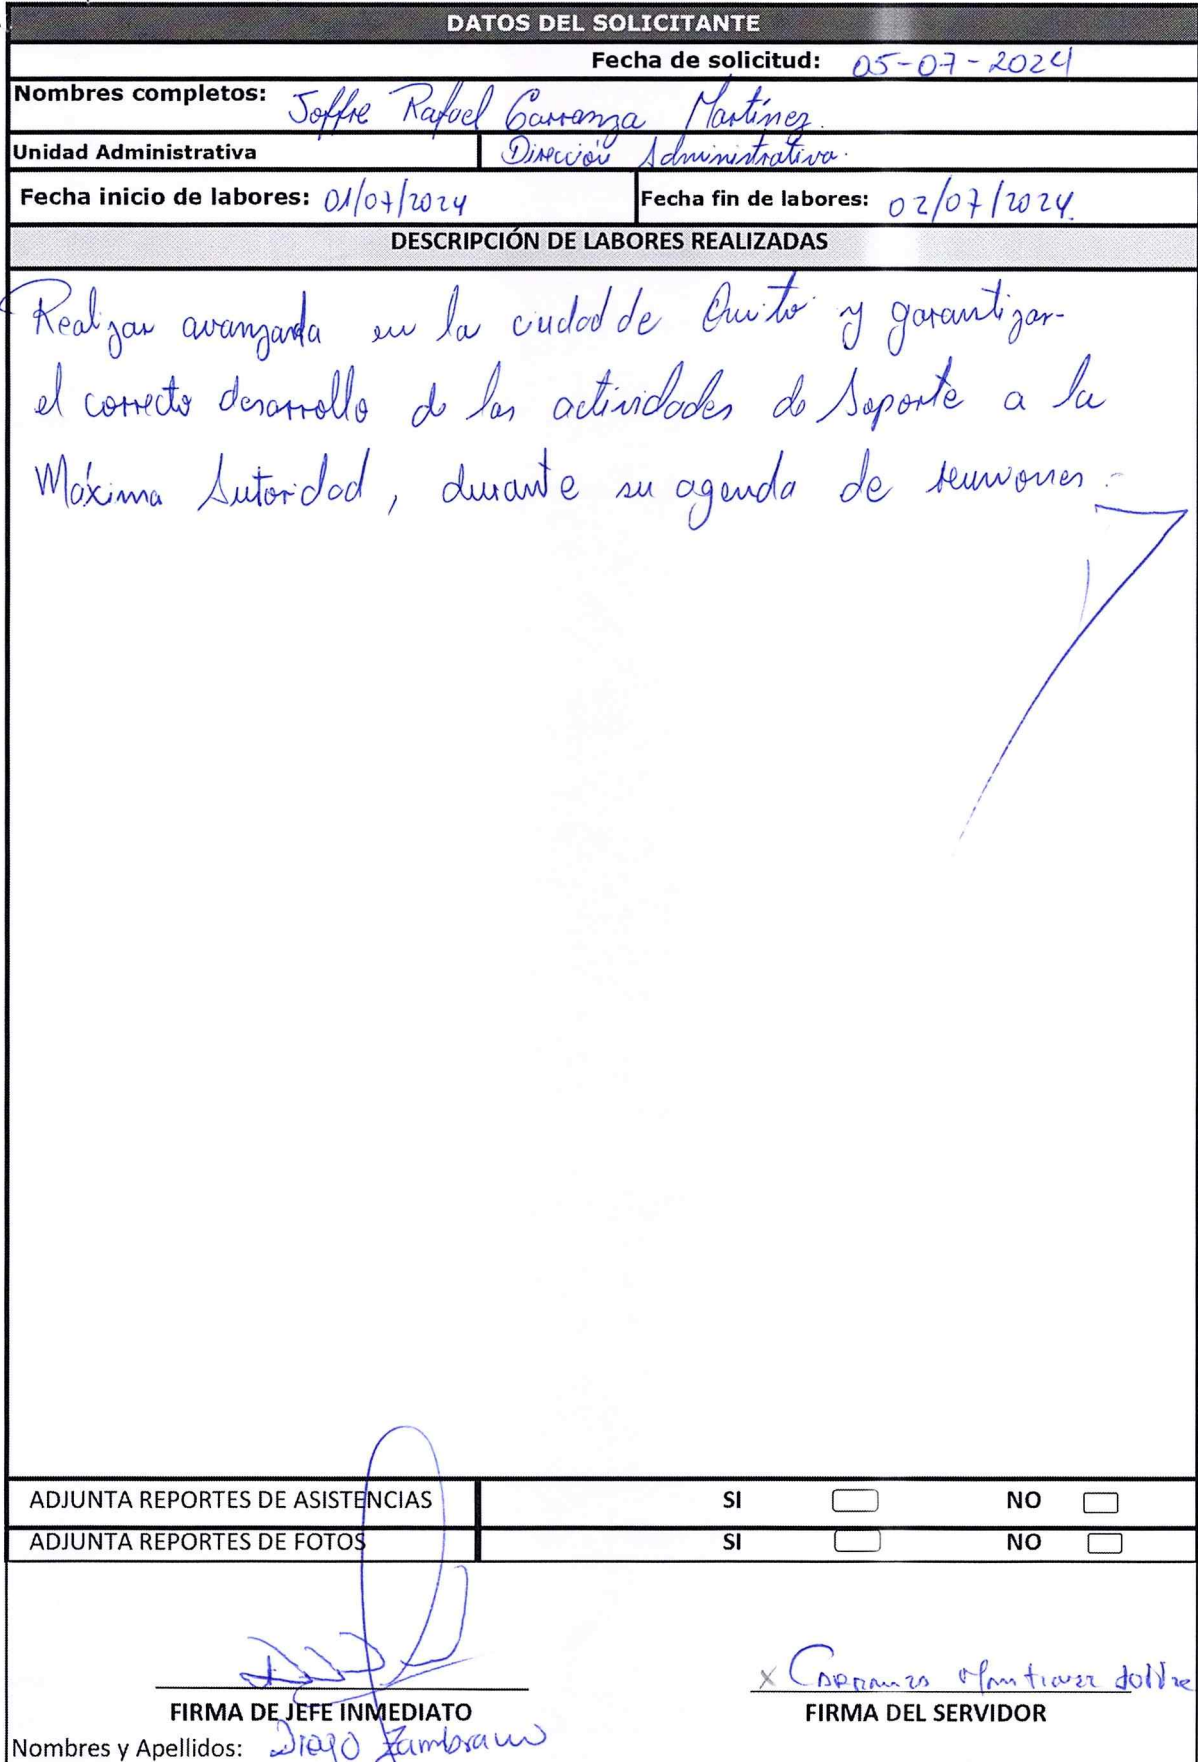 DATOS DEL SOLICITANTE
Fecha de solicitud: 05-07-2024
Nombres completos: Joffre Rafael Carranza Martínez.
Unidad Administrativa Dirección Administrativa.
Fecha inicio de labores: 01/07/2024 Fecha fin de labores: 02/07/2024.
DESCRIPCIÓN DE LABORES REALIZADAS
Realizar avanzada en la ciudad de Quito y garantizar
el correcto desarrollo de las actividades de Soporte a la
Máxima Autoridad, durante su agenda de reuniones.-
ADJUNTA REPORTES DE ASISTENCIAS SI NO
ADJUNTA REPORTES DE FOTOS SI NO
x Carranza Martinez Joffre
FIRMA DE JEFE INMEDIATO FIRMA DEL SERVIDOR
Nombres y Apellidos: Diego Zambrano